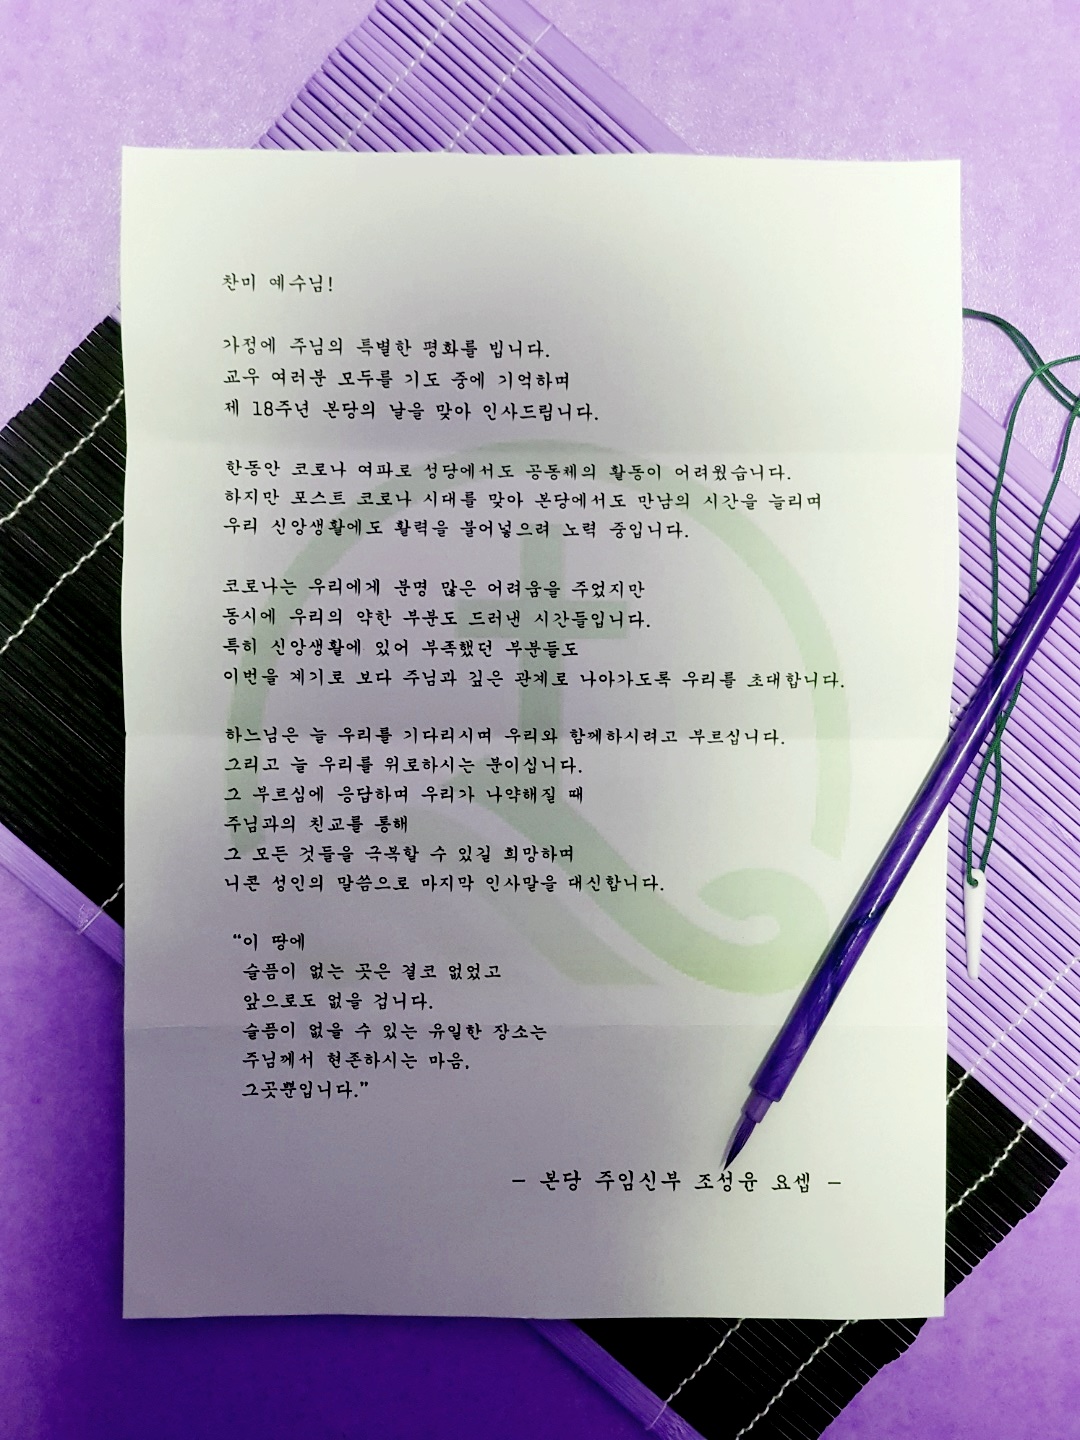 찬미 예수님!
가정에 주님의 특별한 평화를 빕니다.
교우 여러분 모두를 기도 중에 기억하며
제 18주년 본당의 날을 맞아 인사드립니다.
한동안 코로나 여파로 성당에서도 공동체의 활동이 어려웠습니다.
하지만 포스트 코로나 시대를 맞아 본당에서도 만남의 시간을 늘리며
우리 신앙생활에도 활력을 불어넣으려 노력 중입니다.
코로나는 우리에게 분명 많은 어려움을 주었지만
동시에 우리의 약한 부분도 드러낸 시간들입니다.
특히 신앙생활에 있어 부족했던 부분들도
이번을 계기로 보다 주님과 깊은 관계로 나아가도록 우리를 초대합니다.
하느님은 늘 우리를 기다리시며 우리와 함께하시려고 부르십니다.
그리고 늘 우리를 위로하시는 분이십니다.
그 부르심에 응답하며 우리가 나약해질 때
주님과의 친교를 통해
그 모든 것들을 극복할 수 있길 희망하며
니콘 성인의 말씀으로 마지막 인사말을 대신합니다.
“이 땅에
슬픔이 없는 곳은 결코 없었고
앞으로도 없을 겁니다.
슬픔이 없을 수 있는 유일한 장소는
주님께서 현존하시는 마음,
그곳뿐입니다.”
- 본당 주임신부 조성윤 요셉 -